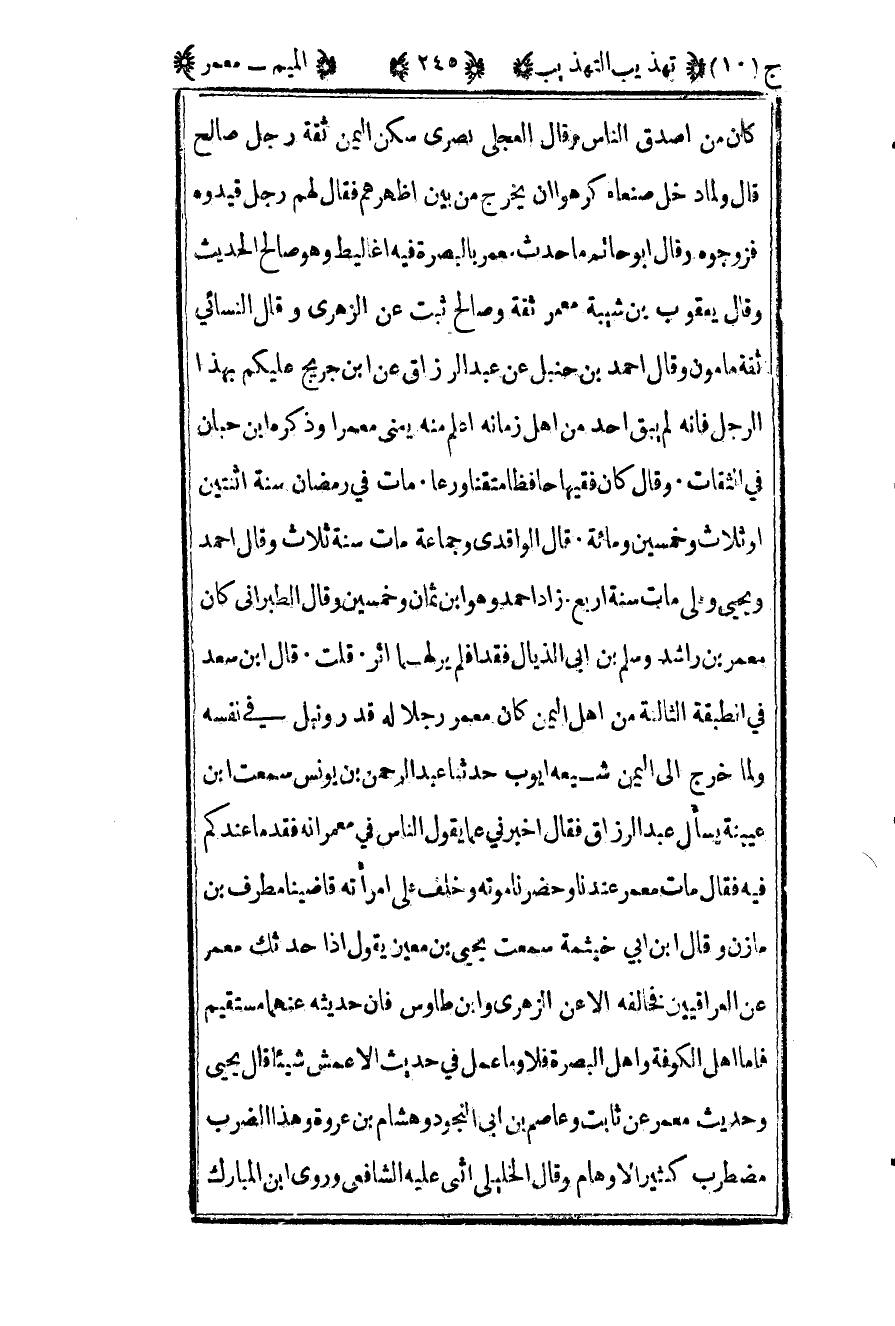 ج (١٠) تهذيب التهذيب ٢٤٥ الميم ــ معمر
كان من اصدق الناس وقال العجلى بصرى سكن اليمن ثقة رجل صالح
قال ولما دخل صنعاء كرهوا ان يخرج من بين اظهرهم فقال لهم رجل قيدوه
فزوجوه وقال ابو حاتم ما حدث معمر بالبصرة فيه اغاليط وهو صالح الحديث
وقال يعقوب بن شيبة معمر ثقة وصالح ثبت عن الزهرى وقال النسائي
ثقة مامون وقال احمد بن حنبل عن عبد الرزاق عن ابن جريج عليكم بهذا
الرجل فانه لم يبق احد من اهل زمانه اعلم منه يعنى معمرا وذكره ابن حبان
في الثقات · وقال كان فقيها حافظا متقنا ورعا · مات في رمضان سنة اثنتين
او ثلاث وخمسين ومائة · قال الواقدى وجماعة مات سنة ثلاث وقال احمد
ويحيى وعلى مات سنة اربع · زاد احمد وهو ابن ثمان وخمسين وقال الطبرانى كان
معمر بن راشد وسلم بن ابى الذيال فقدا فلم ير لهــما اثر · قلت · قال ابن سعد
في الطبقة الثالثة من اهل اليمن كان معمر رجلا له قدر ونبل في نفسه
ولما خرج الى اليمن شــيعه ايوب حدثنا عبد الرحمن بن يونس سمعت ابن
عيينة يسأل عبد الرزاق فقال اخبرني عما يقول الناس في معمر انه فقد ما عندكم
فيه فقال مات معمر عندنا وحضرنا موته وخلف على امرأته قاضينا مطرف بن
مازن وقال ابن ابي خيثمة سمعت يحيى بن معين يقول اذا حدثك معمر
عن العراقيين فخالفه الا عن الزهرى وابن طاوس فان حديثه عنهما مستقيم
فاما اهل الكوفة واهل البصرة فلا وما عمل في حديث الاعمش شيئا قال يحيى
وحديث معمر عن ثابت وعاصم بن ابى النجود وهشام بن عروة وهذا الضرب
مضطرب كثير الاوهام وقال الخليلى اثنى عليه الشافعى وروى ابن المبارك